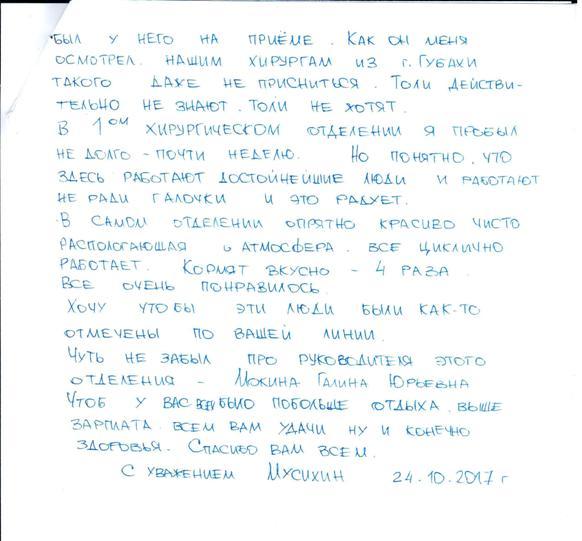 был у него на приёме. Как он меня
осмотрел. нашим хирургам из г. Губахи
такого даже не присниться. Толи действи-
тельно не знают. Толи не хотят.
В 1ом хирургическом отделении я пробыл
не долго - почти неделю. Но понятно, что
здесь работают достойнейшие люди и работают
не ради галочки и это радует.
В самом отделении опрятно красиво чисто
распологающая атмосфера. все циклично
работает. Кормят вкусно - 4 раза.
Все очень понравилось.
Хочу чтобы эти люди были как-то
отмечены по вашей линии.
Чуть не забыл про руководителя этого
отделения - Мокина Галина Юрьевна
Чтоб у вас было побольше отдыха. выше
зарплата. всем вам удачи ну и конечно
здоровья. Спасибо вам всем.
С уважением Мусихин 24.10.2017 г